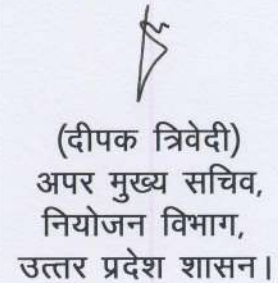 (दीपक त्रिवेदी)
अपर मुख्य सचिव,
नियोजन विभाग,
उत्तर प्रदेश शासन।